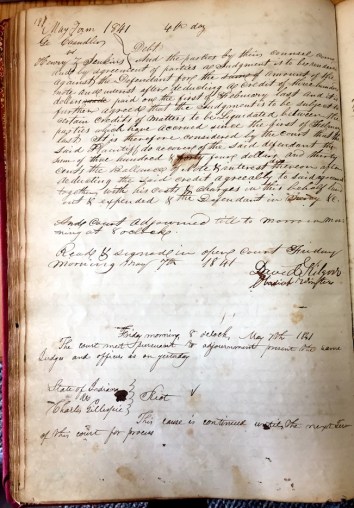 May Term 1841 4th day
vs } Debt
Henry Jenkins And the parties by their counsel come
and by agreement of parties as Judgment is to be rendered
against the Defendant for the amount of the
note and interest after deducting a credit of three hundred
dollars paid on the first of February last and is
further agreed that the Judgment is to be subject to
certain credits of matters to be liquidated between the
parties which have accrued since the first of
last It is therefore considered by the court that the
said Plaintiff do recover of the said defendant the
sum of three hundred & forty four dollars and thirty
cents the Ballance of Note & interest thereon after
deducting the said credit agreeably to said agreement
together with his costs & charges in this behalf laid
out & expended & the Defendant in &c.
And Court Adjourned till to morrow mor
ning at 8 oclock.
Read & signed in open Court Friday
Morning May 7th 1841
David Kilgore
Friday morning 8 oclock, May 7th 1841
The court met pursuant to adjournment present the same
Judges and officers as on yesterday
State of Indiana }
vs } Riot
Charles Gillespie }
This cause is continued until the next Term
of this court for process